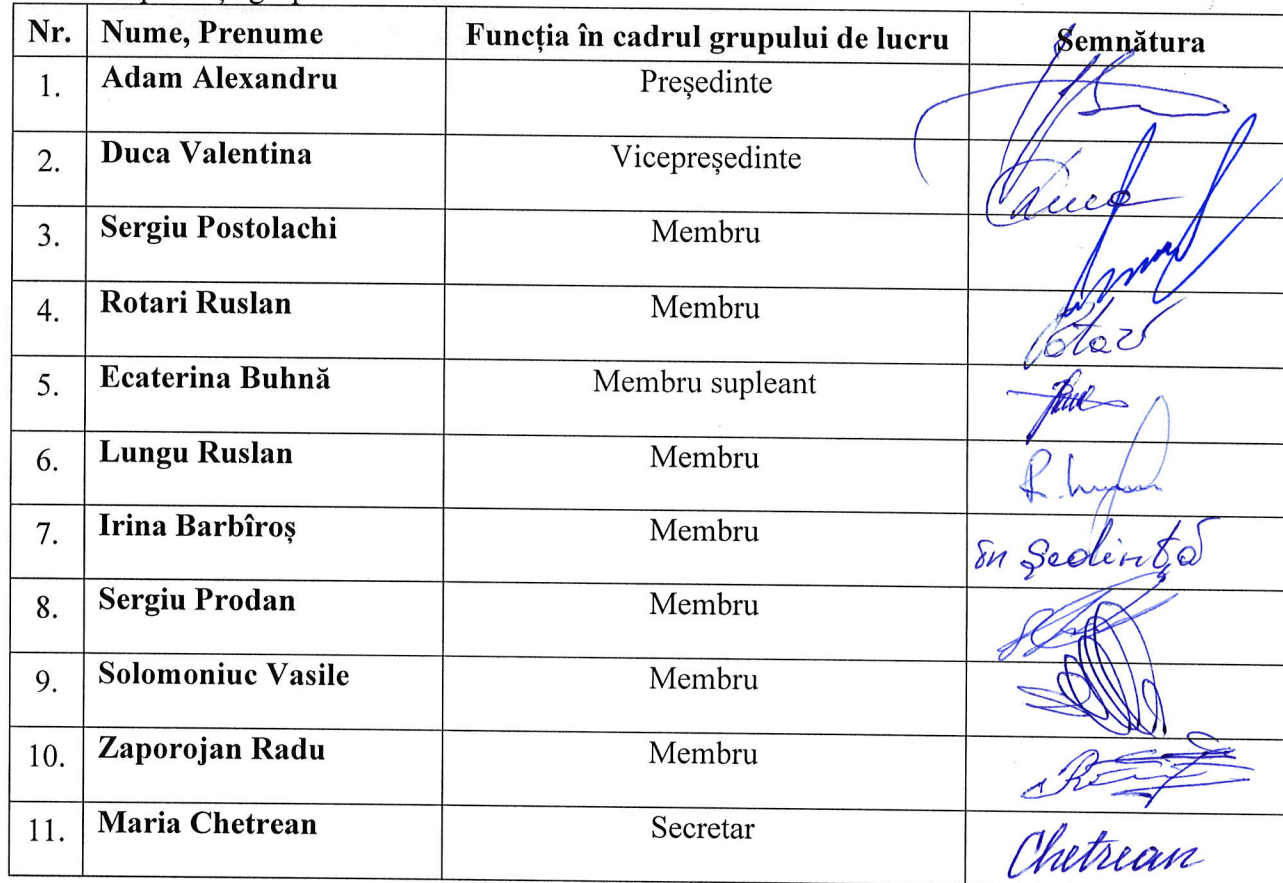 Nr. Nume, Prenume Funcția în cadrul grupului de lucru Semnătura
1. Adam Alexandru Președinte
2. Duca Valentina Vicepreședinte Duca
3. Sergiu Postolachi Membru
4. Rotari Ruslan Membru
5. Ecaterina Buhnă Membru supleant
6. Lungu Ruslan Membru
7. Irina Barbîroș Membru în ședință
8. Sergiu Prodan Membru
9. Solomoniuc Vasile Membru
10. Zaporojan Radu Membru
11. Maria Chetrean Secretar Chetrean